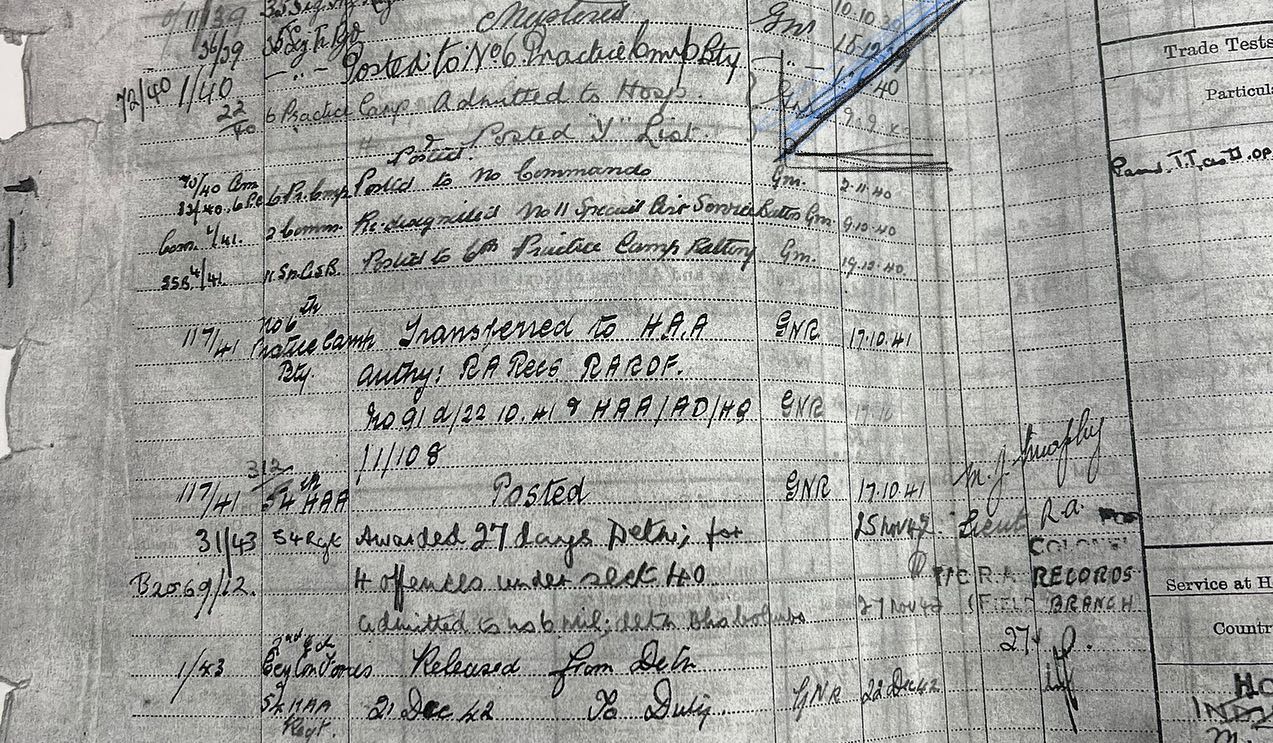 11/39 Mustered Gnr 10.10.39
36/39 15.12.39
72/40 1/40 — " — Posted to No 6 Practice Camp Bty — " — 40
22/40 6 Practice Camp Admitted to Hosp. Gnr 40
" & Posted "Y" List. 9.9.40
Posted
6 Pr. Camp Posted to No Commando Gnr. 2.11.40
Com. 4/41. 2 Comm. Re-designated No 11 Special Air Service Battn Gnr 9.12.40
SSB 4/41 11 S.A.S.B. Posted to 6th Practice Camp Battery Gnr. 19.12.40
117/41 No 6th Practice Camp Bty. Transferred to HAA GNR 17.10.41
Authy: RA Recs RAROF.
No 91 d/22.10.41 & HAA/AD/HQ GNR 17.10
11/108
312
117/41 54th HAA Posted GNR 17.10.41 M. J. Murphy
31/43 54 Rgt Awarded 27 days Detn; for 25 Nov 42 Lieut R.A.
COLONEL
4 offences under sect 40 I/C R.A. RECORDS
admitted to no 6 mil; detn 27 Nov 42 (FIELD BRANCH
27
1/43 Ceylon Forces Released from Detn
54 HAA Regt. 21 Dec 42 To Duty. GNR 22 Dec 42
Trade Tests
Particula
Service at H
Countr
HO
INDI